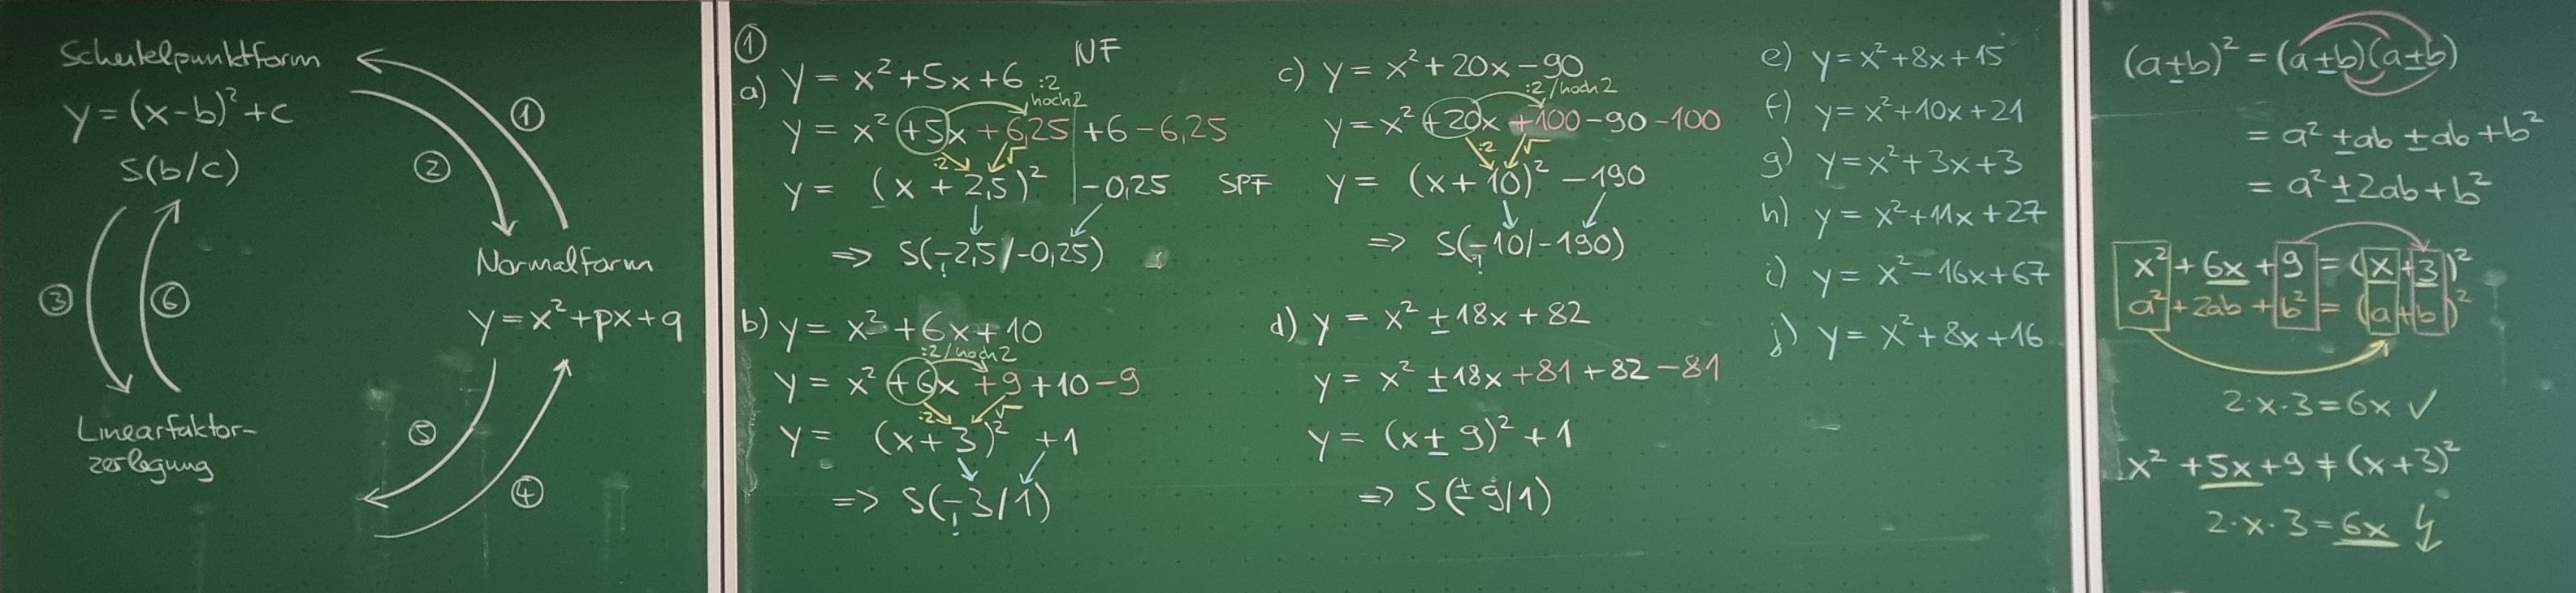 Scheitelpunktform
y = (x-b)² + c
S(b/c)
①
②
③
⑥
Normalform
y = x² + px + q
Linearfaktor-
zerlegung
⑤
④
①
NF
a) y = x² + 5x + 6
:2
hoch 2
y = x² + 5x + 6,25 + 6 - 6,25
:2 √
y = (x + 2,5)² - 0,25 SPF
=> S(-2,5/-0,25)
!
b) y = x² + 6x + 10
:2/hoch 2
y = x² + 6x + 9 + 10 - 9
:2 √
y = (x+3)² + 1
=> S(-3/1)
!
c) y = x² + 20x - 90
:2/hoch 2
y = x² + 20x + 100 - 90 - 100
:2 √
y = (x+10)² - 190
=> S(-10/-190)
!
d) y = x² ± 18x + 82
y = x² ± 18x + 81 + 82 - 81
y = (x ± 9)² + 1
=> S(± 9/1)
e) y = x² + 8x + 15
f) y = x² + 10x + 21
g) y = x² + 3x + 3
h) y = x² + 11x + 27
i) y = x² - 16x + 67
j) y = x² + 8x + 16
(a±b)² = (a±b)(a±b)
= a² ± ab ± ab + b²
= a² ± 2ab + b²
x² + 6x + 9 = (x+3)²
a² + 2ab + b² = (a+b)²
2·x·3 = 6x ✓
x² + 5x + 9 ≠ (x+3)²
2·x·3 = 6x ↯